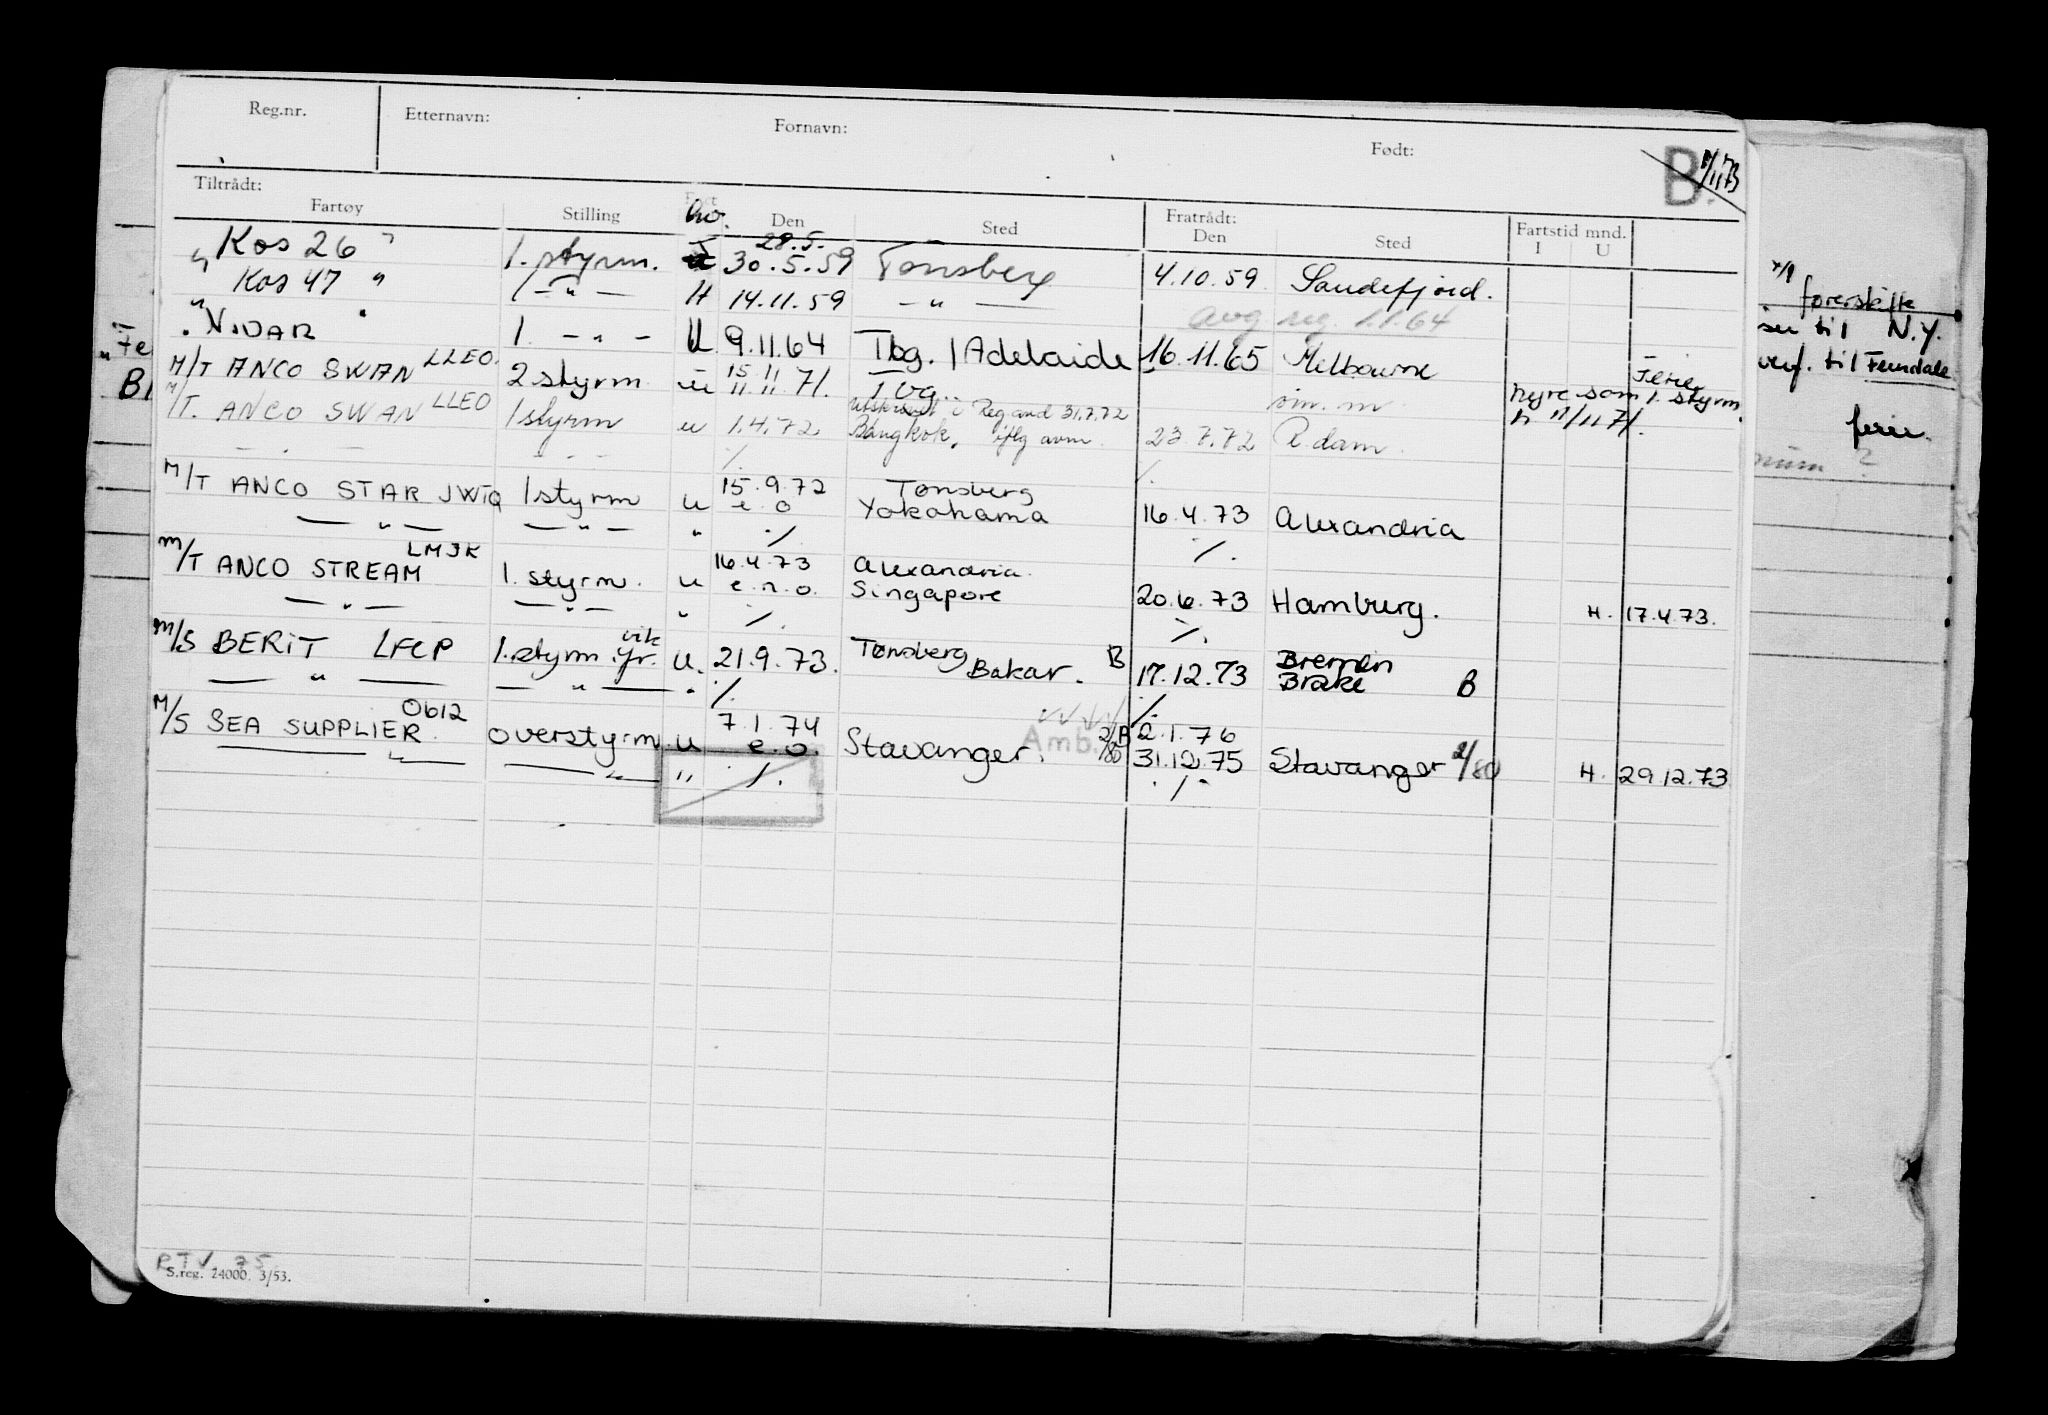 Reg.nr. Etternavn: Fornavn: Født:
B. 11/73
Tiltrådt: Fratrådt: Fartstid mnd.
Fartøy Stilling Den Sted Den Sted I U
28.5.
"Kos 26" 1. styrm. 30.5.59 Tønsberg 4.10.59 Sandefjord.
"Kos 47" 1 — " — H 14.11.59 — " —
avg reg. 1.1.64
"NIDAR" 1. — " — U 9.11.64 Tbg. / Adelaide 16.11.65 Melbourne
15.11 Ferier
M/T ANCO SWAN LLEO. 2 styrm. u 11.11.71. Tbg. hyre som 1. styrm.
utskrevet i Reg and 31.7.72 fr 11/11 71.
M/T. ANCO SWAN LLEO 1 styrm u 1.4.72 Bangkok. iflg avm. 23.7.72 R.dam.
— " — — " — ./. ./.
15.9.72 Tønsberg
M/T ANCO STAR JWTQ 1 styrm u e.o Yokohama 16.4.73 Alexandria
— " — — " — " ./. ./.
LMJK 16.4.73 Alexandria.
M/T ANCO STREAM 1. styrm. u e.n.o. Singapore 20.6.73 Hamburg. H. 17.4.73.
— " — — " — " ./. ./.
vik Tønsberg Bremen
M/S BERIT LFCP 1. styrm. fr. u. 21.9.73. Bakar. B 17.12.73 Brake B
— " — — " — " ./. ./.
0612 7.1.74 Amb. 2.1.76
M/S SEA SUPPLIER. overstyrm. u e.o. Stavanger. 2/80 31.12.75 Stavanger 2/80 H. 29.12.73
— " — — " — " ./. ./.
RTV 75
S.reg. 24000. 3/53.
førerskifte
til N.Y.
til Ferndale
ferie.
?
"Fe